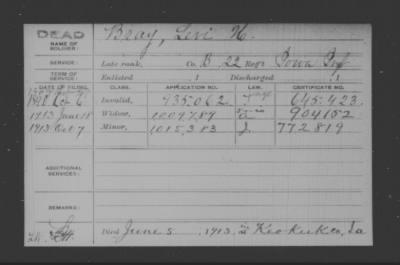 DEAD
NAME OF SOLDIER: Bray, Levi H.
SERVICE: Late rank, Co. B, 22 Reg't Iowa Inf
TERM OF SERVICE: Enlisted , 1 Discharged , 1
DATE OF FILING. CLASS. APPLICATION NO. LAW. CERTIFICATE NO.
Invalid, 435.062 645.423
1913 June 18 Widow, 1009.787 904152
1913 Oct 7 Minor, 1015.383 772819
ADDITIONAL SERVICES:
REMARKS:
Died June 5, 1913, at Keokuk Co, Ia